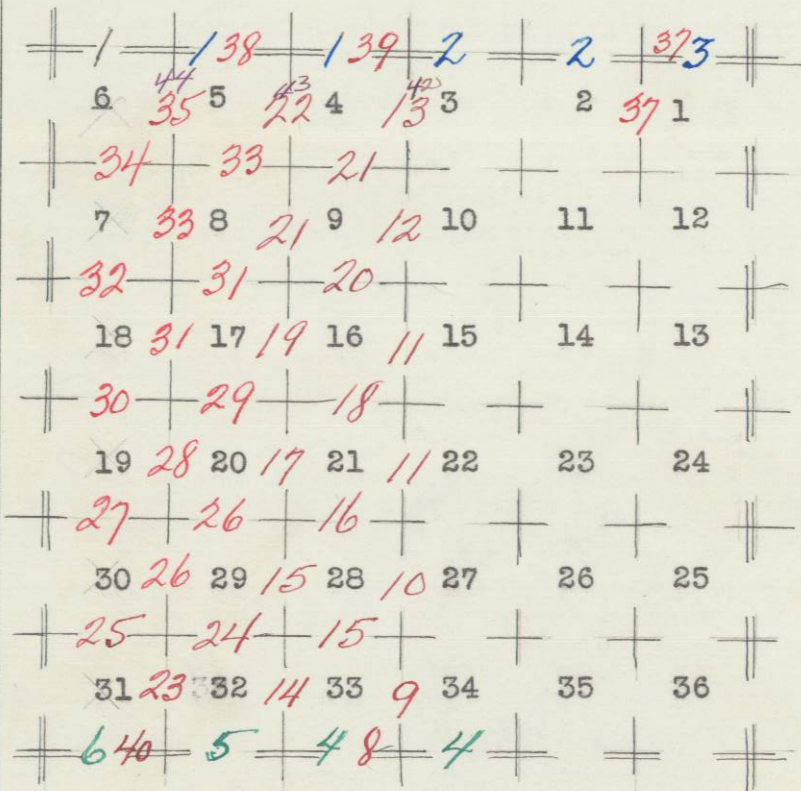 1 1 38 1 39 2 2 37 3
44 43 42
6 35 5 22 4 13 3 2 37 1
34 33 21
7 33 8 21 9 12 10 11 12
32 31 20
18 31 17 19 16 11 15 14 13
30 29 18
19 28 20 17 21 11 22 23 24
27 26 16
30 26 29 15 28 10 27 26 25
25 24 15
31 23 32 14 33 9 34 35 36
6 40 5 4 8 4